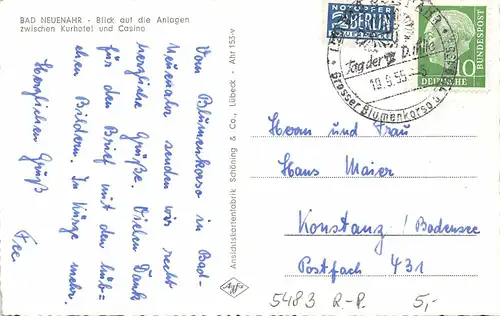 BAD NEUENAHR - Blick auf die Anlagen
zwischen Kurhotel und Casino
Vom Blumenkorso in Bad-
Neuenahr senden wir recht
herzliche Grüße. Vielen Dank
für den Brief mit den hüb-
schen Bildern. In Kürze mehr.
Herzlichen Gruß
Fee
Ansichtskartenfabrik Schöning & Co., Lübeck - Ahr 153-v
Agfa
NOTOPFER
2 BERLIN
STEUERMARKE
Tag der
19.6.55
Grosser Blumenkorso
DEUTSCHE BUNDESPOST
10
Herrn und Frau
Hans Maier
Konstanz/Bodensee
Postfach 431
5483 R.-P. 5,-